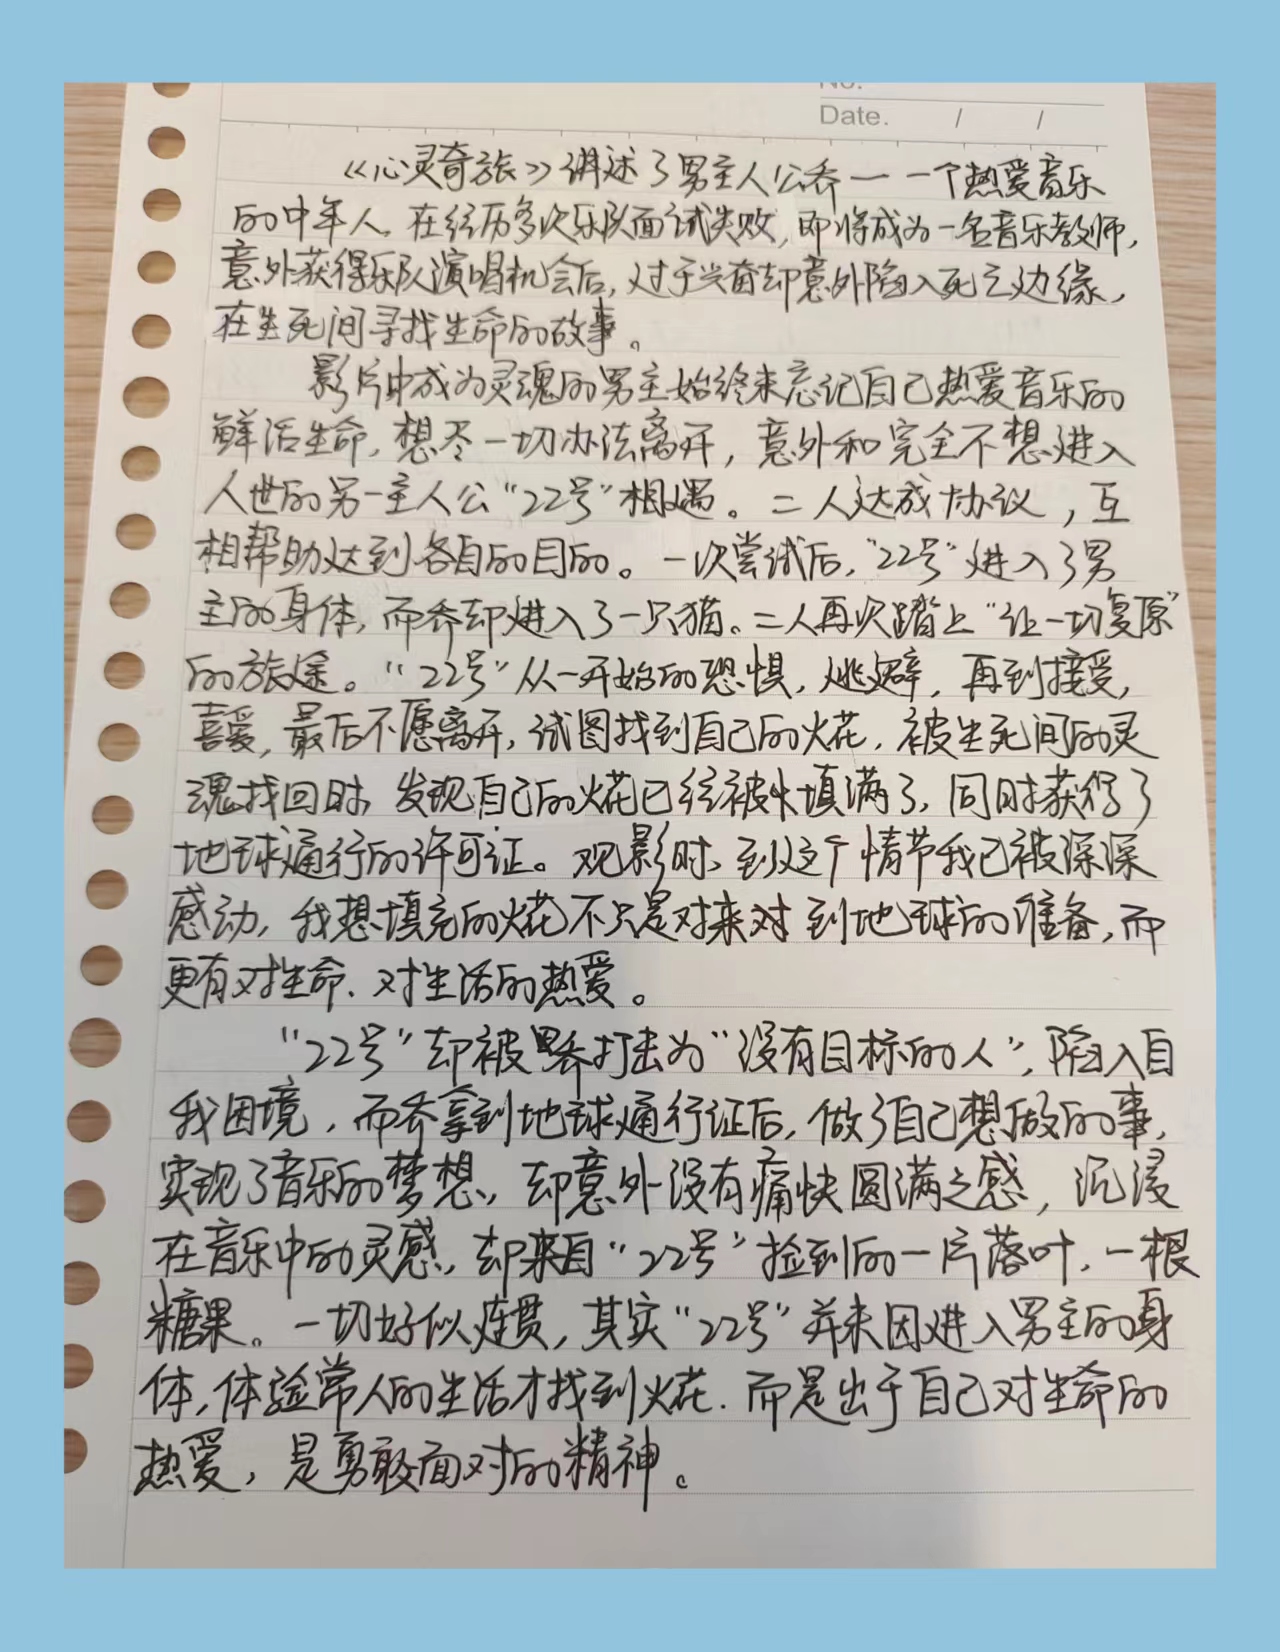 No.
Date. / /
《心灵奇旅》讲述了男主人公乔一一个热爱音乐
的中年人,在经历多次乐队面试失败,即将成为一名音乐教师,
意外获得乐队演唱机会后,过于兴奋却意外陷入死亡边缘,
在生死间寻找生命的故事。
影片中成为灵魂的男主始终未忘记自己热爱音乐的
鲜活生命,想尽一切办法离开,意外和完全不想进入
人世的另一主人公“22号”相遇。二人达成协议,互
相帮助达到各自的目的。一次尝试后,“22号”进入了男
主的身体,而乔却进入了一只猫。二人再次踏上“让一切复原”
的旅途。“22号”从一开始的恐惧,逃避,再到接受,
喜爱,最后不愿离开,试图找到自己的火花,被生死间的灵
魂找回时,发现自己的火花已经被填满了,同时获得了
地球通行的许可证。观影时,到这个情节我已被深深
感动,我想填充的火花不只是对来对到地球的准备,而
更有对生命、对生活的热爱。
“22号”却被乔打击为“没有目标的人”,陷入自
我困境,而乔拿到地球通行证后,做了自己想做的事,
实现了音乐的梦想,却意外没有痛快圆满之感,沉浸
在音乐中的灵感,却来自“22号”捡到的一片落叶,一根
糖果。一切好似连贯,其实“22号”并未因进入男主的身
体,体验常人的生活才找到火花.而是出于自己对生命的
热爱,是勇敢面对的精神。